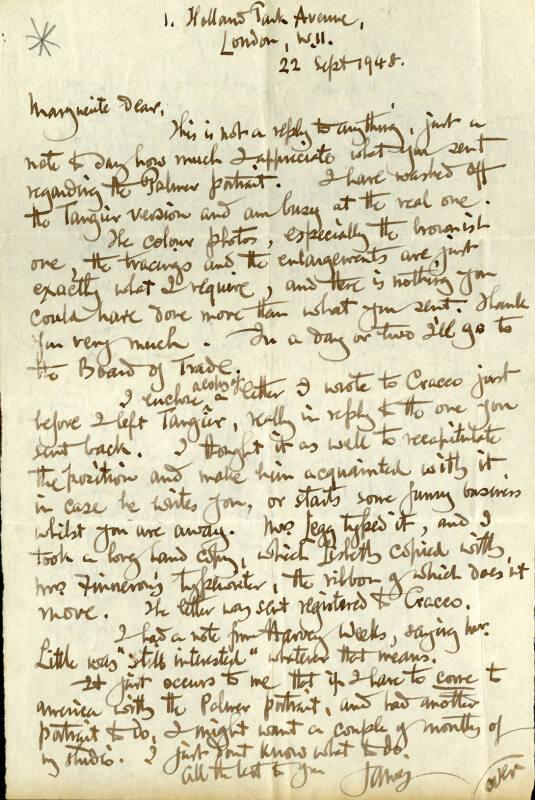 1. Holland Park Avenue,
London, W.11.
22 Sept 1948.
Marguerite Dear,
This is not a reply to anything, just a
note to say how much I appreciate what you sent
regarding the Palmer portrait. I have washed off
the Tangier version and am busy at the real one.
The colour photos, especially the brownish
one, the tracings and the enlargements are, just
exactly what I require, and there is nothing you
could have done more than what you sent. Thank
you very much. In a day or two I'll go to
the Board of Trade.
I enclose a copy of a letter I wrote to Cracco just
before I left Tangier, really in reply to the one you
sent back. I thought it as well to recapitulate
the position and make him acquainted with it
in case he writes you, or starts some funny business
whilst you are away. Mrs. Jegg typed it, and I
took a long hand copy, which copied with
Mrs. typewriter, the ribbon of which does it
move. The letter was sent registered to Cracco.
I had a note from Harvey Weeks, saying
Little was "still interested" whatever that means.
It just occurs to me that if I have to come to
America with the Palmer portrait, and had another
portrait to do, I might want a couple of months of
my studio. I just don't know what to do.
All the best to you
over